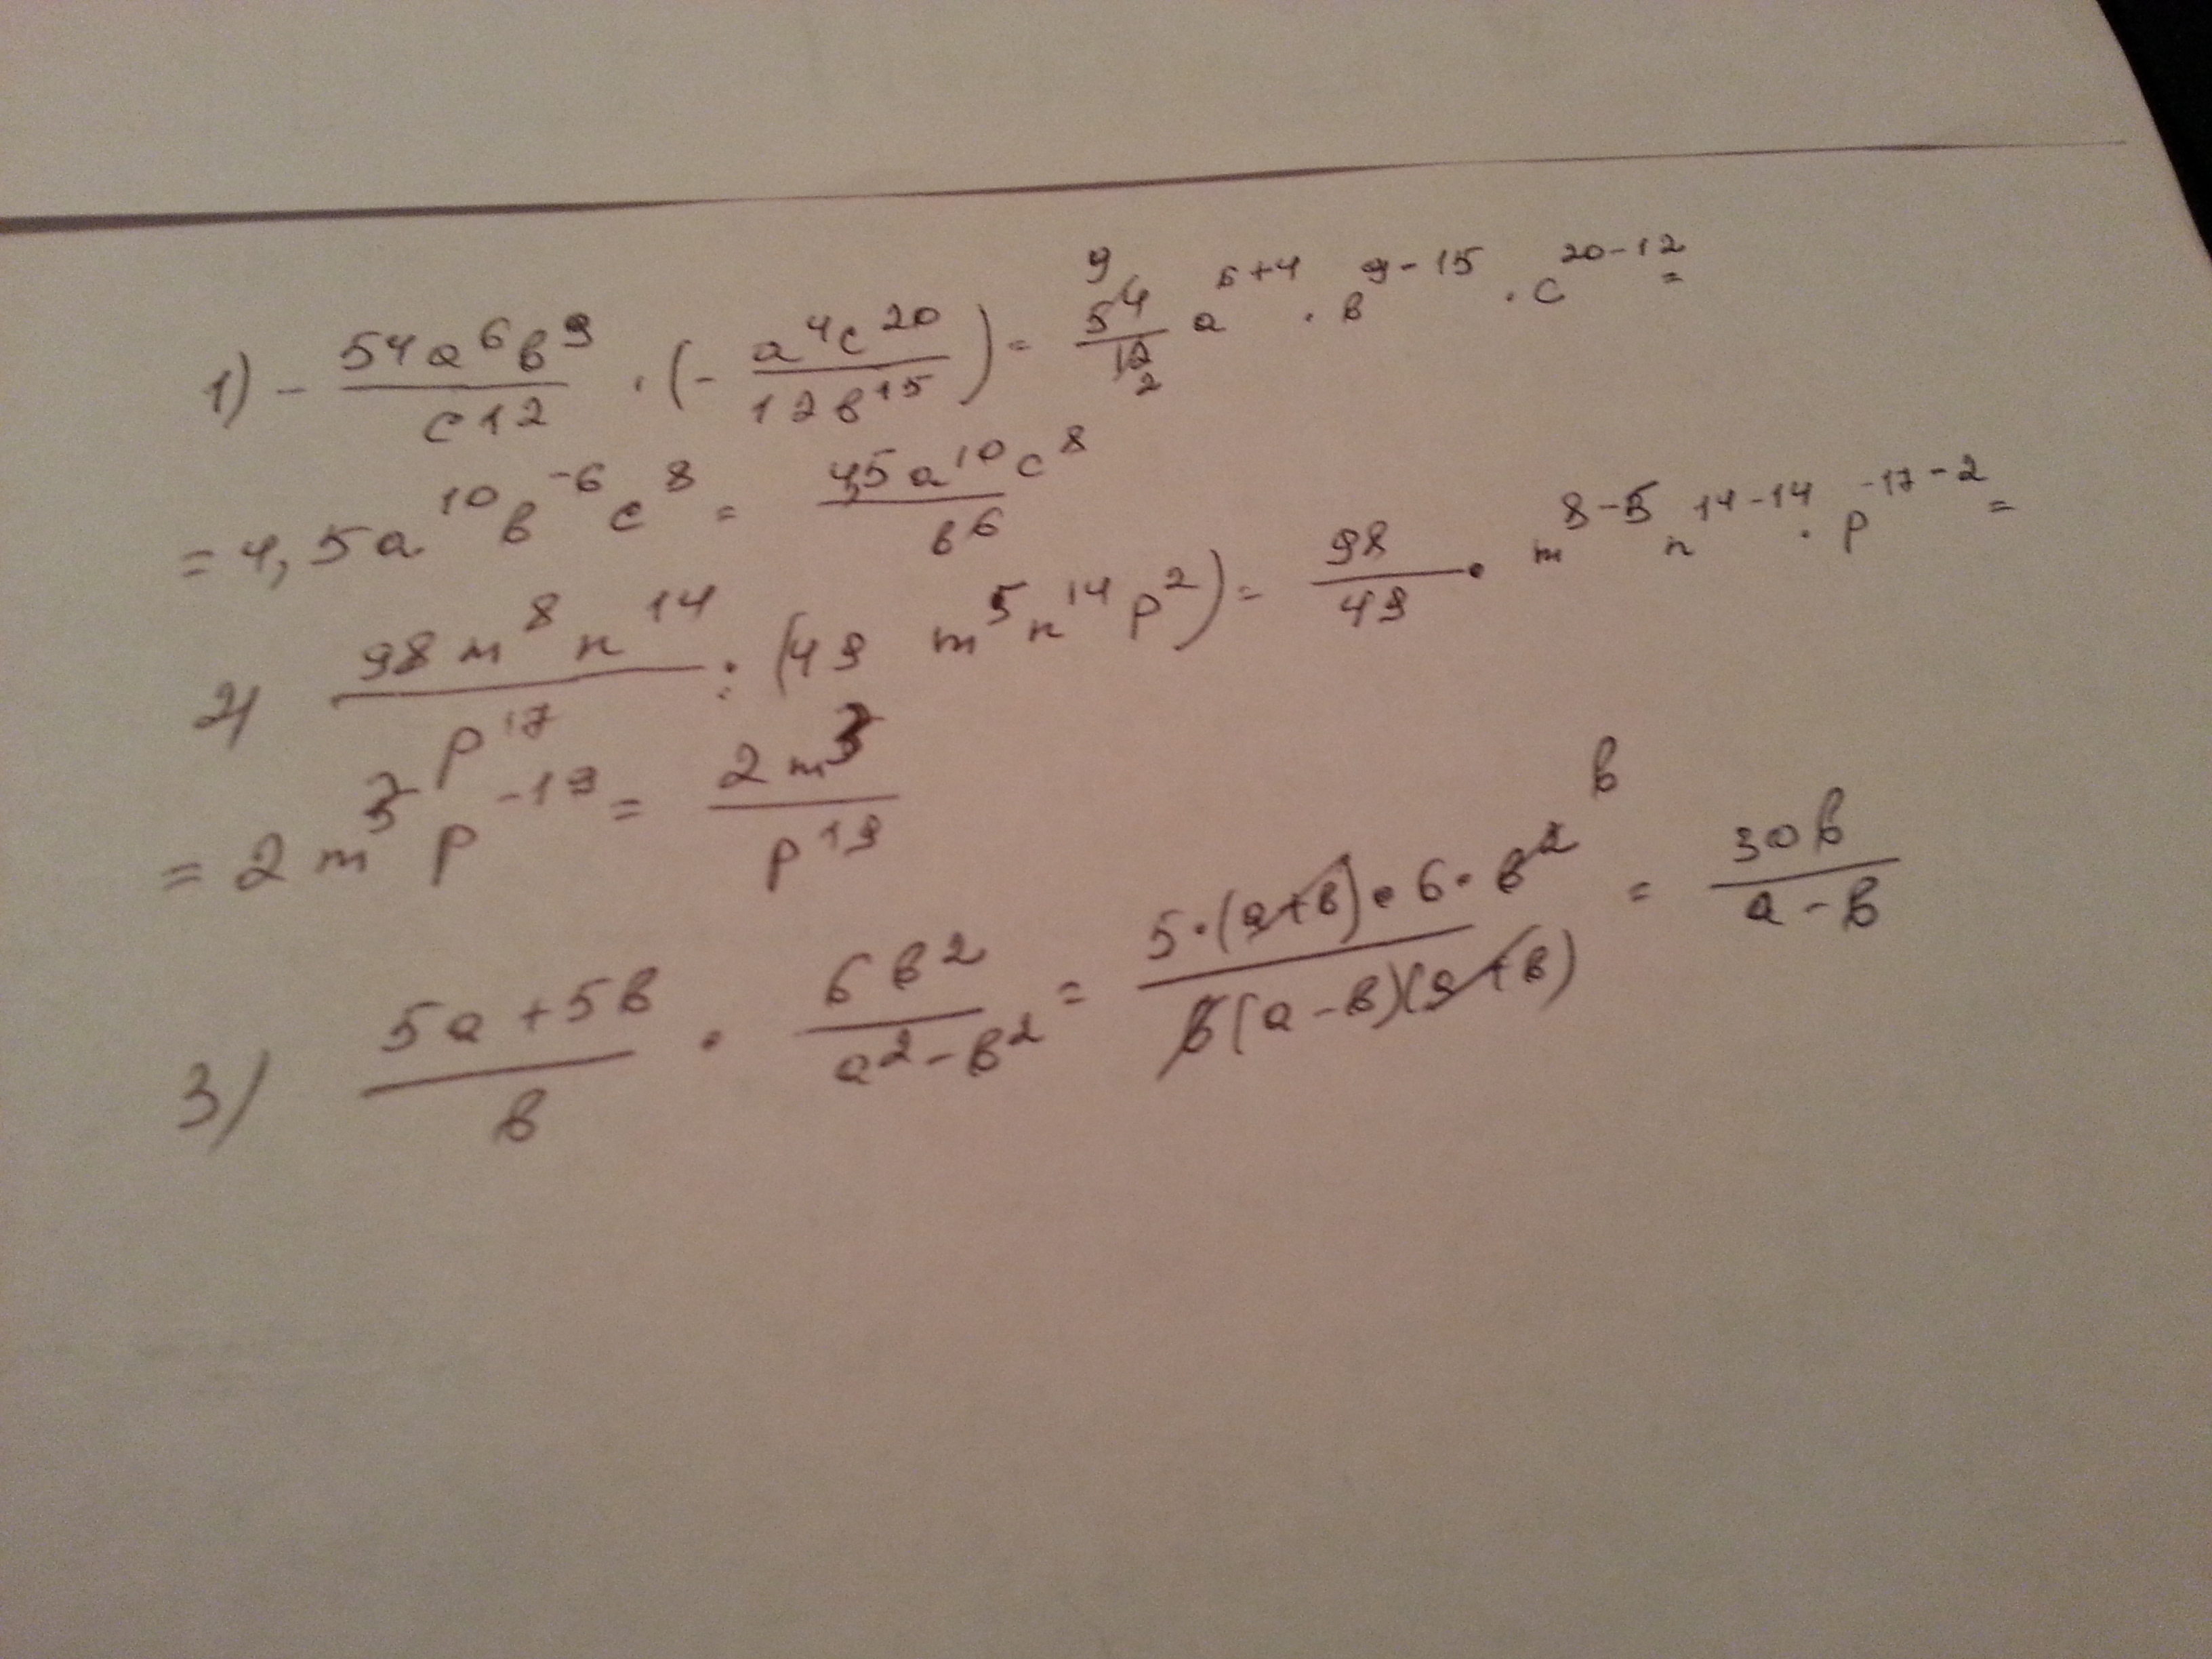 1) - 54a⁶в⁹/c¹² · (- a⁴c²⁰/12в¹⁵) = ⁹54/12₂ a⁶⁺⁴ · в⁹⁻¹⁵ · c²⁰⁻¹² =
= 4,5a¹⁰в⁻⁶c⁸ = 4,5a¹⁰c⁸/в⁶
2) 98m⁸n¹⁴/p¹⁷ : (49 m⁵n¹⁴p²) = 98/49 · m⁸⁻⁵ n¹⁴⁻¹⁴ · p⁻¹⁷⁻² =
= 2m³p⁻¹⁹ = 2m³/p¹⁹
3) 5a+5в/в · 6в²/a²-в² = 5·(a+в)·6·в² в/в(a-в)(a+в) = 30в/a-в